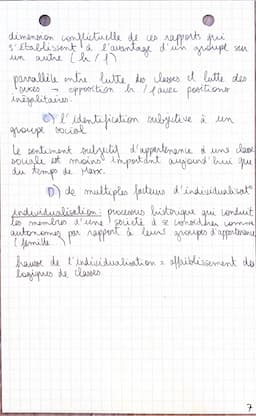 dimension conflictuelle de ces rapports qui
s'établissent à l'avantage d'un groupe sur
un autre (h / f)
parallèle entre lutte des classes et lutte des
sexes → opposition h / f avec positions
inégalitaires.
C) l'identification subjective à un
groupe social
Le sentiment subjectif d'appartenance à une classe
sociale est moins important aujourd'hui que
du temps de Marx.
D) de multiples facteurs d'individualisat°
Individualisation : processus historique qui conduit
les membres d'une société à se considérer comme
autonomes par rapport à leurs groupes d'appartenance
(famille
hausse de l'individualisation = affaiblissement des
logiques de classes
7